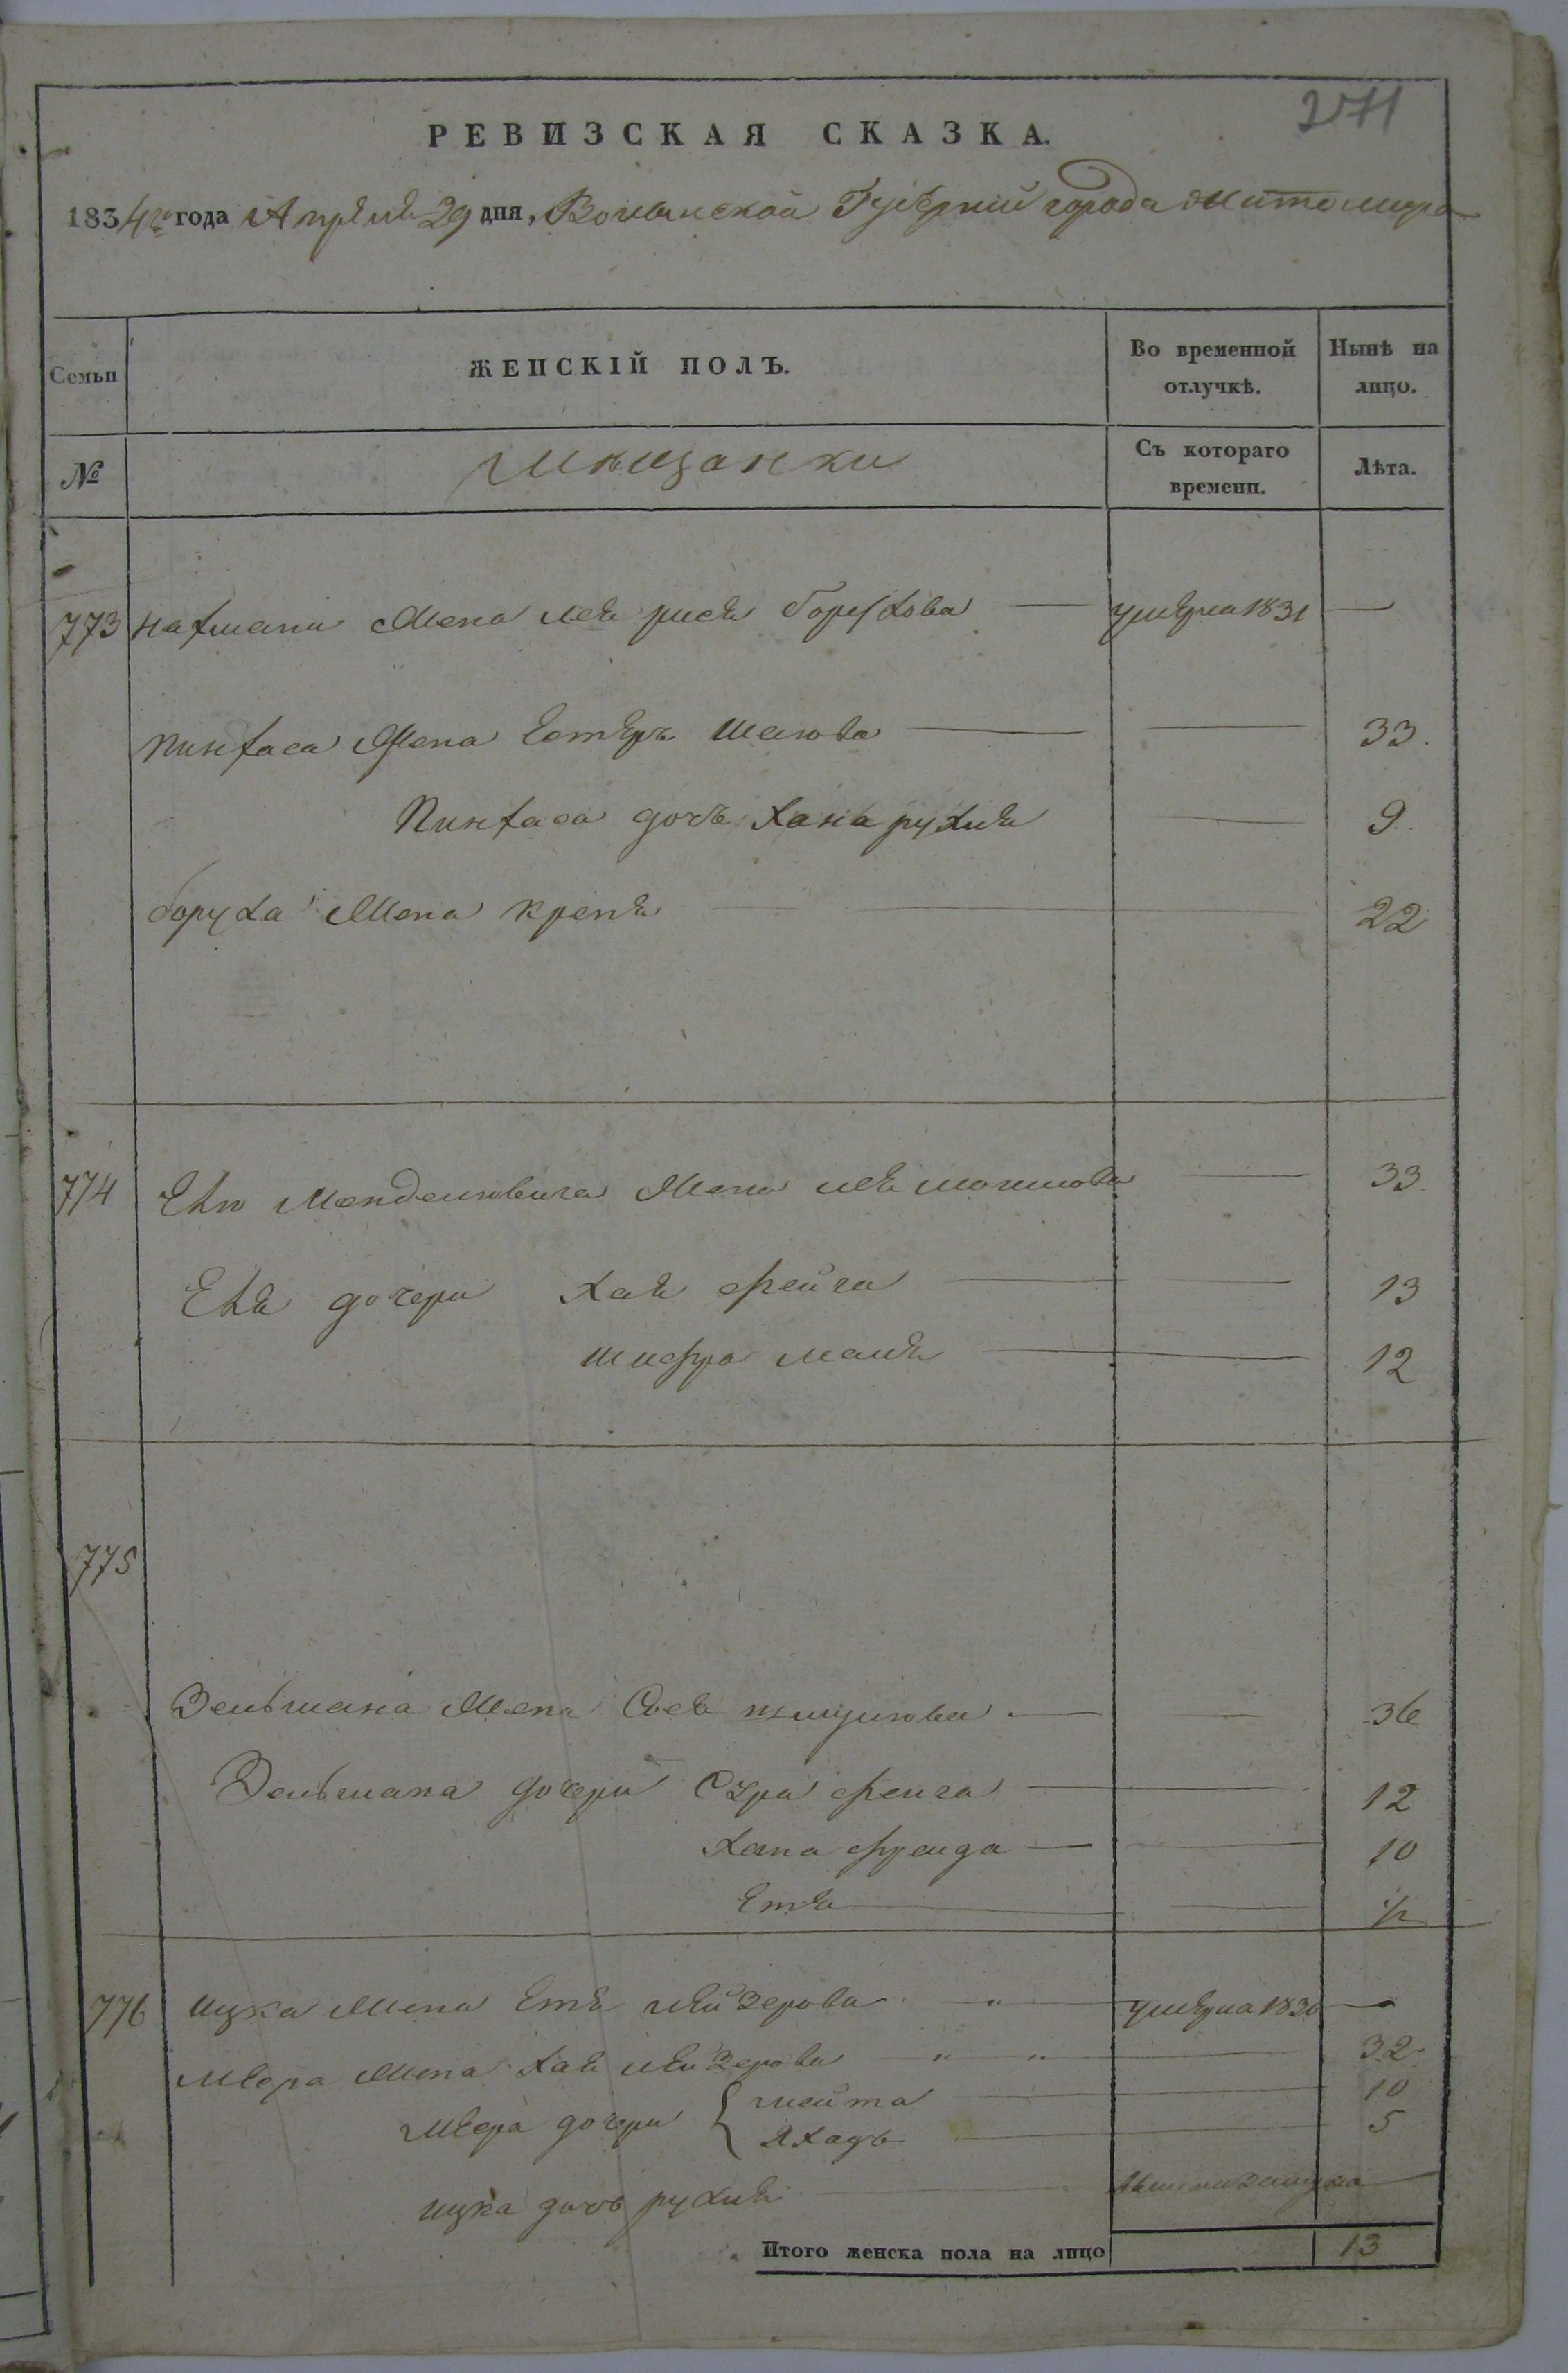 271
РЕВИЗСКАЯ СКАЗКА.
1834го года Апреля 29 дня, Волынской Губернии города Житомира
Семьи
ЖЕНСКІЙ ПОЛЪ.
Во временной отлучкѣ.
Нынѣ на лицо.
№
Мѣщанки
Съ котораго времени.
Лѣта.
773 Нахмани жена лея рися борухова — умерла 1831 —
Пинхаса жена Естеръ — — 33.
Пинхаса дочь Хана рухля — 9.
боруха жена креня — 22
774 Ево Менделювича жена лея мошкова — 33.
Ево дочери хая фейга — — 13
шифра маля — 12
775
Зельмана жена Сося — — 36
Зельмана дочери Сура фейга — 12
Хана фрейда — — 10
Етя — — 1/2
776 Ицка жена Етя лейзерова " умерла 1830 —
Меера жена Хая лейзерова " " — 32
Меера дочери { мейта — 10
Яхадъ — 5
ицка дочь рухля — замужна —
Итого женска пола на лицо 13